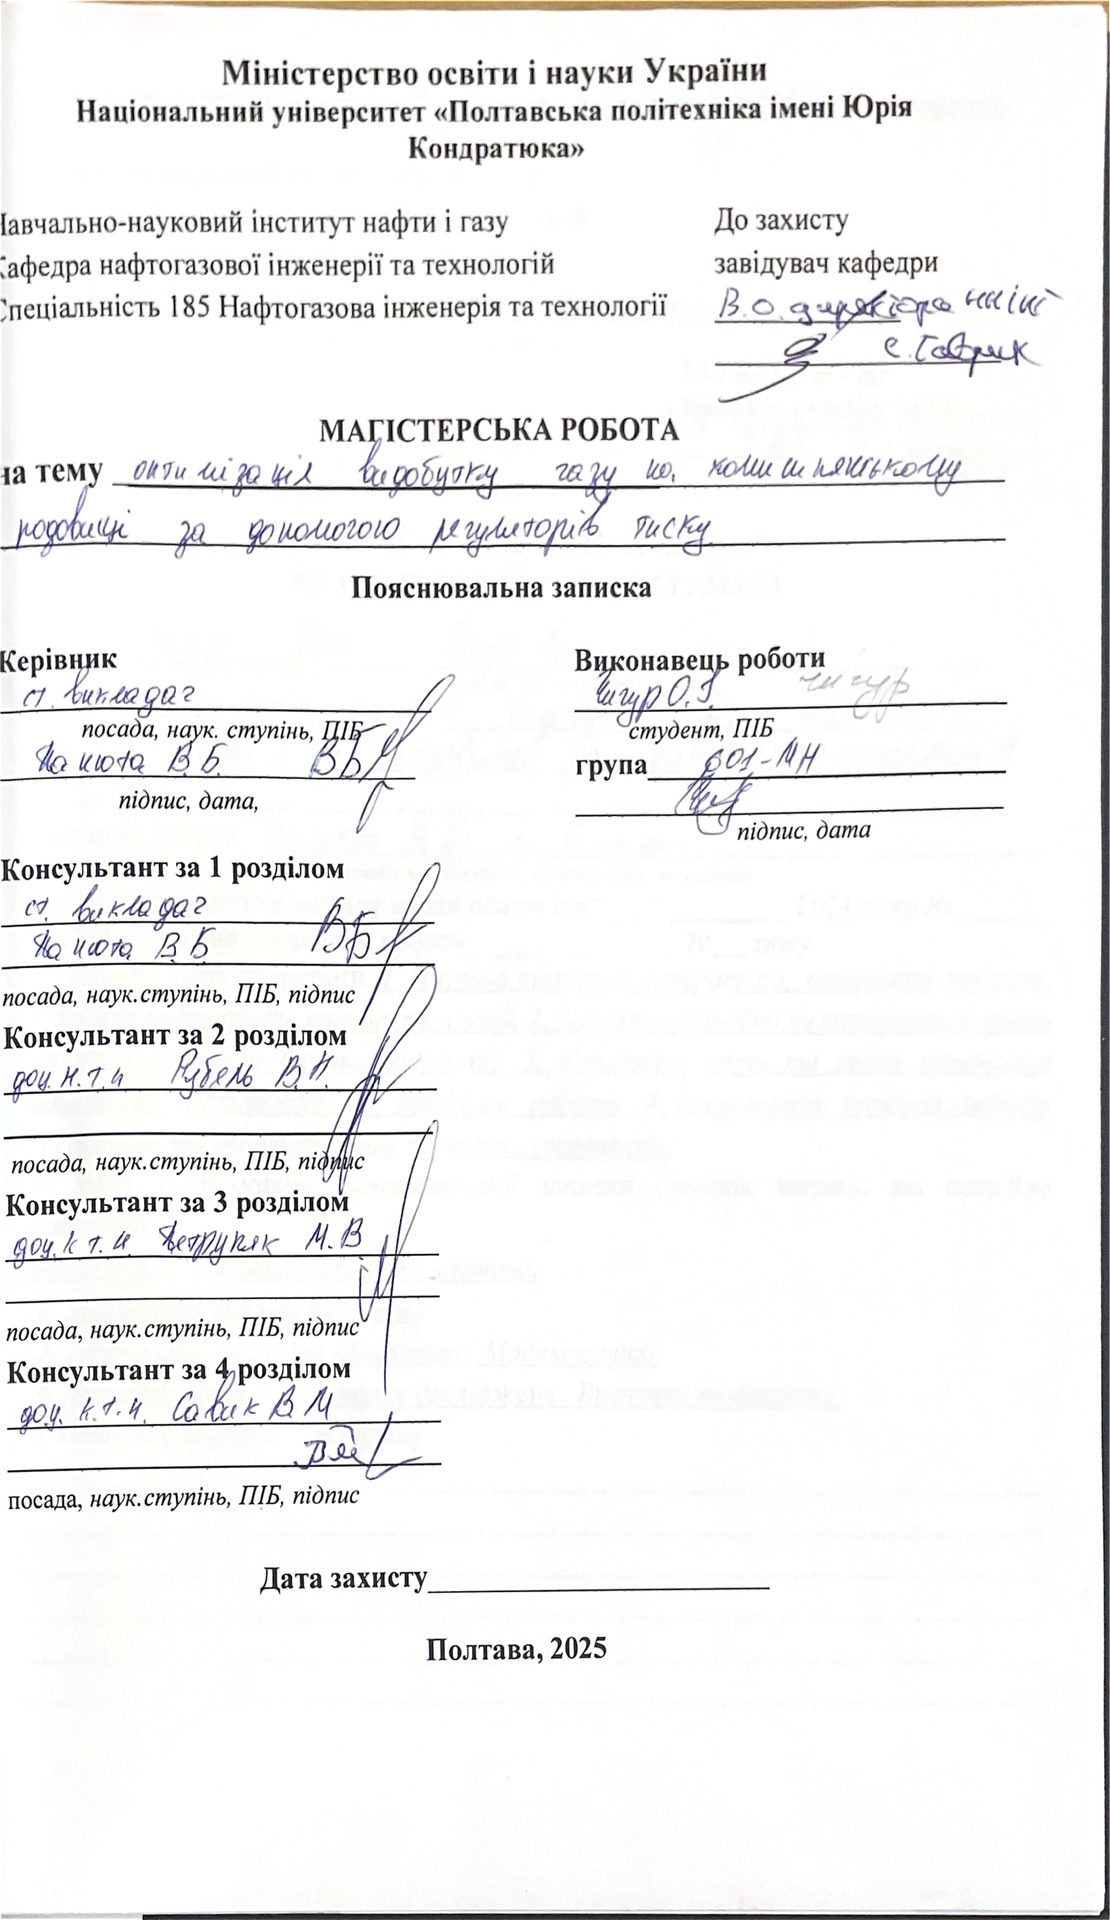 Міністерство освіти і науки України
Національний університет «Полтавська політехніка імені Юрія
Кондратюка»
Навчально-науковий інститут нафти і газу
До захисту
Кафедра нафтогазової інженерії та технологій
завідувач кафедри
Спеціальність 185 Нафтогазова інженерія та технології
В.о. директора ННІНГ
Є. Гаврик
МАГІСТЕРСЬКА РОБОТА
на тему оптимізація видобутку газу на комишнянському
родовищі за допомогою регуляторів тиску
Пояснювальна записка
Керівник
Виконавець роботи
ст. викладач
Чигур О.І. чигур
посада, наук. ступінь, ПІБ
студент, ПІБ
В.Б. ВБ
група 601-МН
підпис, дата,
підпис, дата
Консультант за 1 розділом
ст. викладач ВБ
В.Б.
посада, наук.ступінь, ПІБ, підпис
Консультант за 2 розділом
доц. к.т.н Рубель В.П.
посада, наук.ступінь, ПІБ, підпис
Консультант за 3 розділом
доц. к т.н. Петруняк М.В.
посада, наук.ступінь, ПІБ, підпис
Консультант за 4 розділом
доц. к.т.н. Савик В.М
посада, наук.ступінь, ПІБ, підпис
Дата захисту
Полтава, 2025